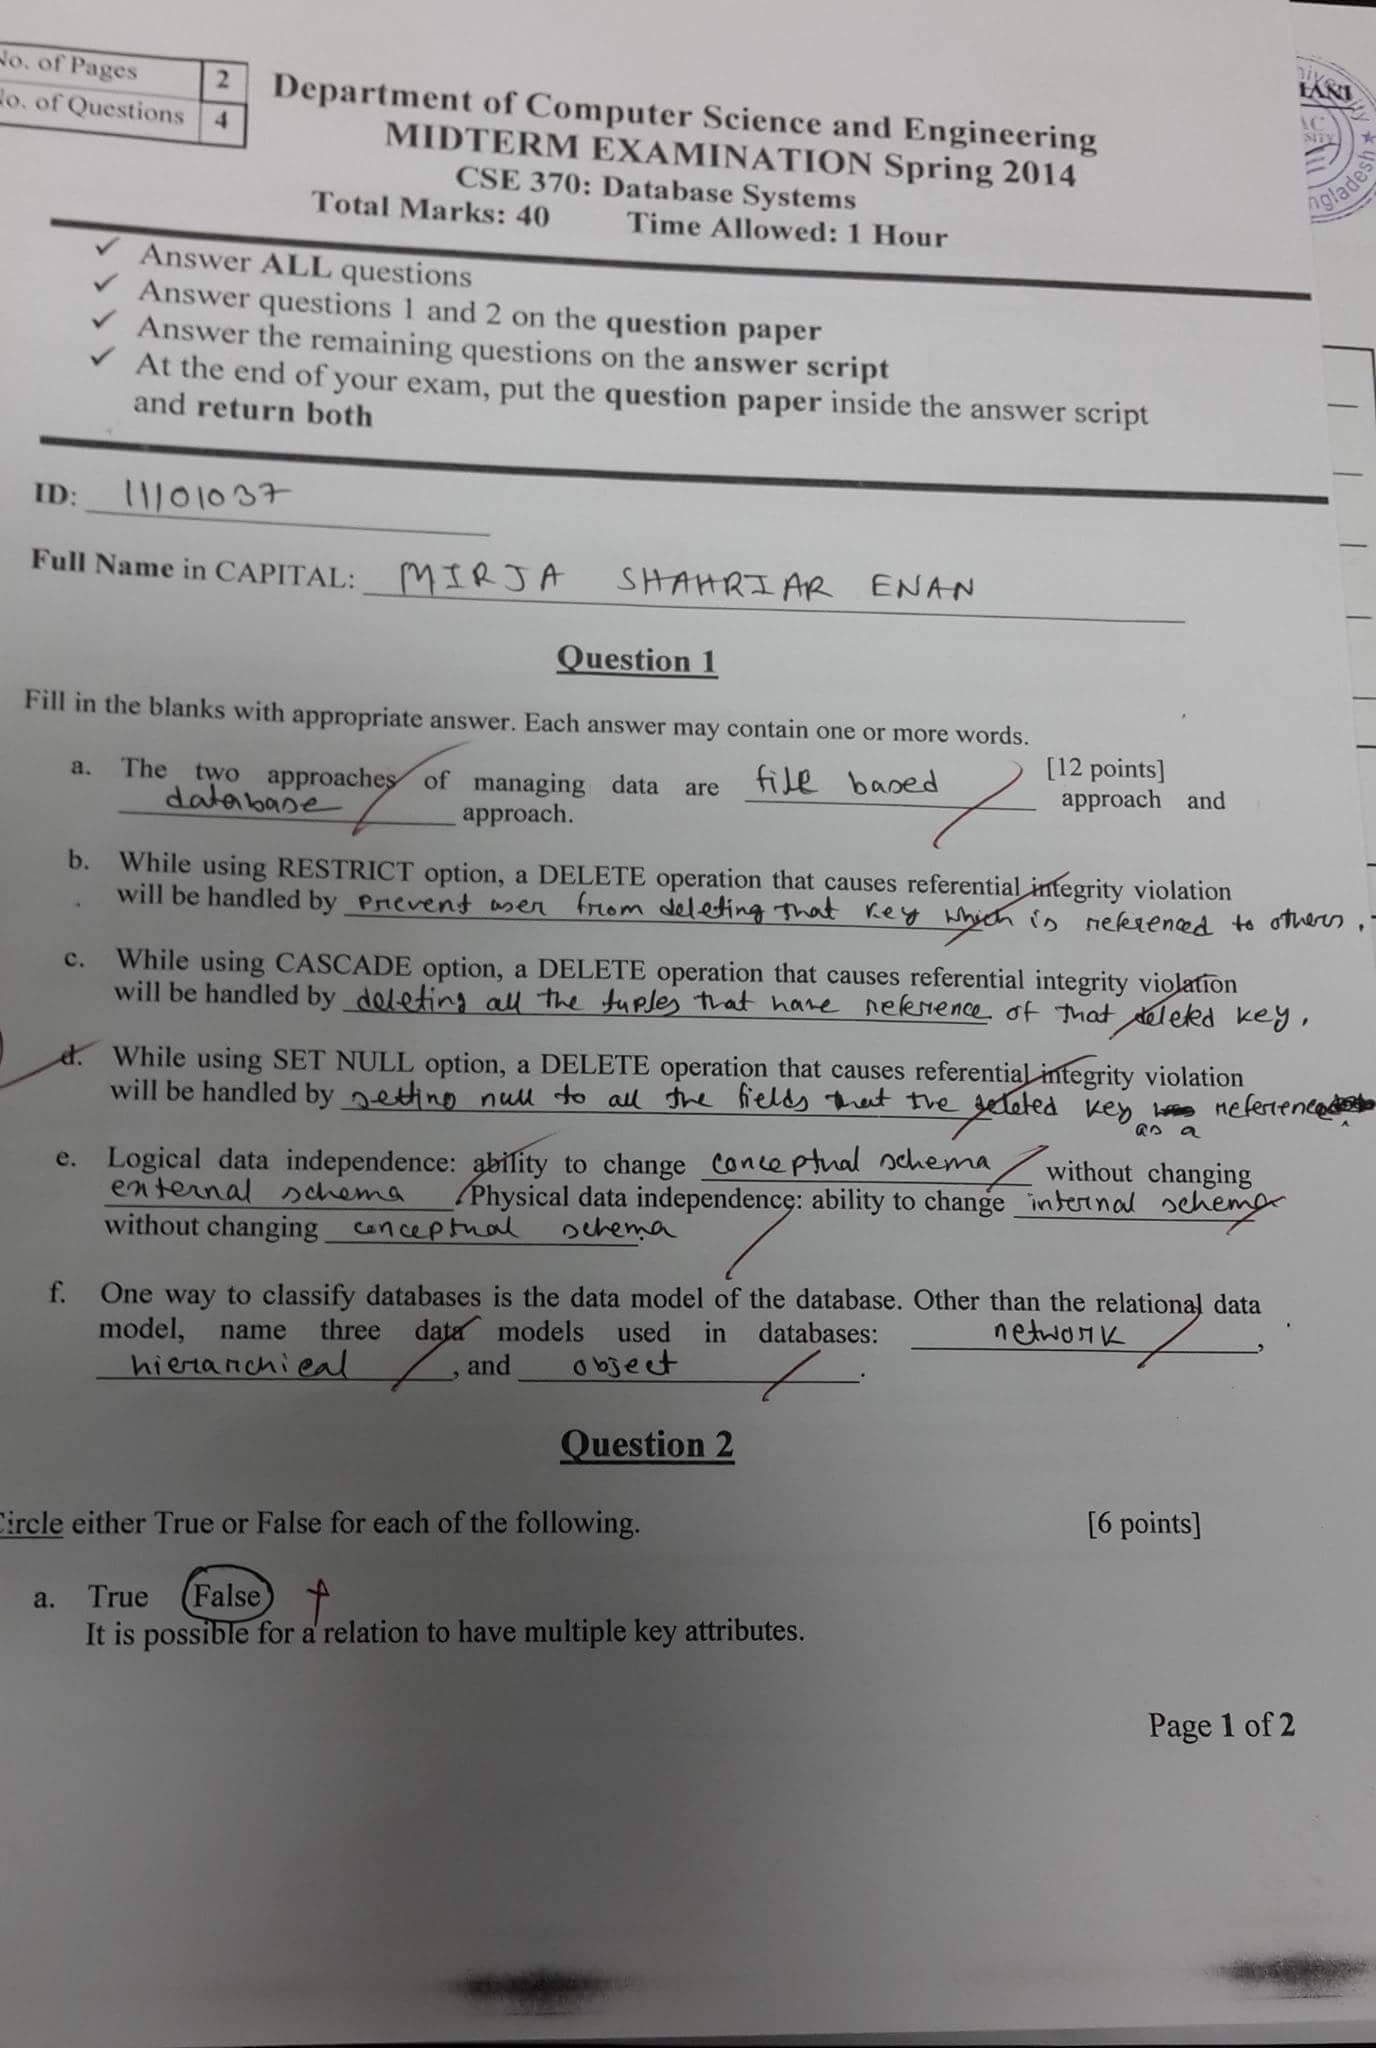 No. of Pages 2
No. of Questions 4
Department of Computer Science and Engineering
MIDTERM EXAMINATION Spring 2014
CSE 370: Database Systems
Total Marks: 40 Time Allowed: 1 Hour
✓ Answer ALL questions
✓ Answer questions 1 and 2 on the question paper
✓ Answer the remaining questions on the answer script
✓ At the end of your exam, put the question paper inside the answer script
and return both
ID: 11101037
Full Name in CAPITAL: MIRJA SHAHRIAR ENAN
Question 1
Fill in the blanks with appropriate answer. Each answer may contain one or more words.
[12 points]
a. The two approaches of managing data are file based approach and
database approach.
b. While using RESTRICT option, a DELETE operation that causes referential integrity violation
will be handled by prevent user from deleting that key which is referenced to others.
c. While using CASCADE option, a DELETE operation that causes referential integrity violation
will be handled by deleting all the tuples that have reference of that deleted key.
d. While using SET NULL option, a DELETE operation that causes referential integrity violation
will be handled by setting null to all the fields that the deleted key as a reference
e. Logical data independence: ability to change conceptual schema without changing
external schema. Physical data independence: ability to change internal schema
without changing conceptual schema.
f. One way to classify databases is the data model of the database. Other than the relational data
model, name three data models used in databases: network,
hierarchical, and object.
Question 2
Circle either True or False for each of the following. [6 points]
a. True False
It is possible for a relation to have multiple key attributes.
Page 1 of 2